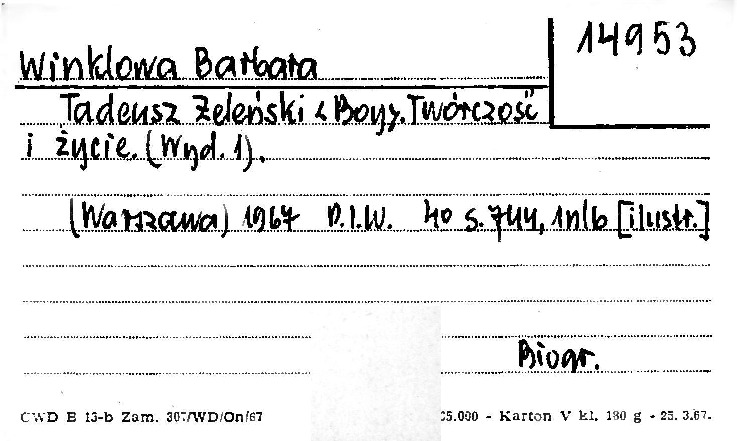 14953
Winklowa Barbara
Tadeusz Żeleński <Boy>. Twórczość
i życie. (Wyd. 1).
(Warszawa) 1967 P.I.W. 4o s. 744, 1nlb [ilustr.]
Biogr.
CWD E 15-b Zam. 307/WD/On/67 35.000 - Karton V kl. 180 g - 25. 3.67.